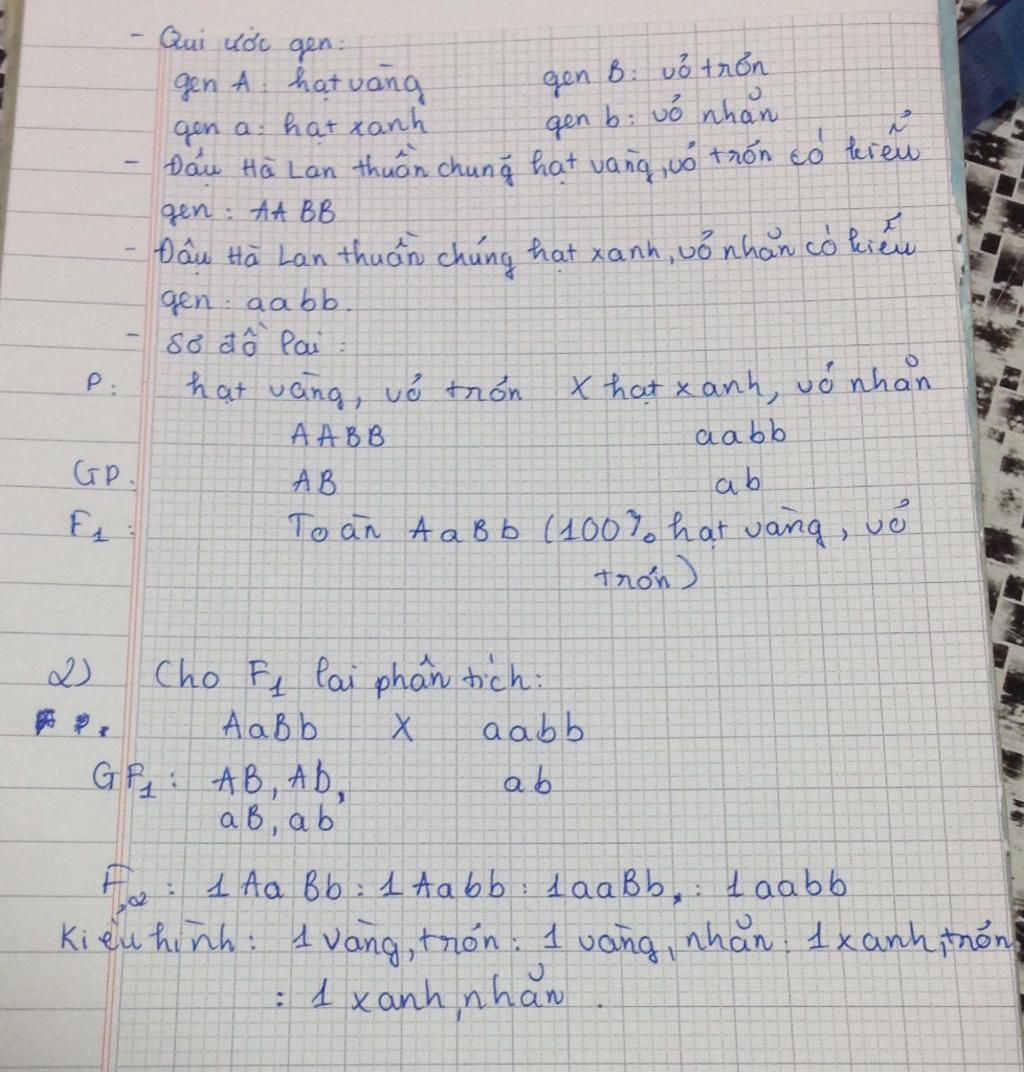 - Qui ước gen:
gen A: hạt vàng gen B: vỏ trơn
gen a: hạt xanh gen b: vỏ nhăn
- Đậu Hà Lan thuần chủng hạt vàng, vỏ trơn có kiểu
gen: AABB
- Đậu Hà Lan thuần chủng hạt xanh, vỏ nhăn có kiểu
gen: aabb.
- Sơ đồ lai:
P: hạt vàng, vỏ trơn X hạt xanh, vỏ nhăn
AABB aabb
GP: AB ab
F1: Toàn AaBb (100% hạt vàng, vỏ
trơn)
2) Cho F1 lai phân tích:
P: AaBb X aabb
GF1: AB, Ab, ab
aB, ab
F2: 1AaBb : 1Aabb : 1aaBb : 1aabb
Kiểu hình: 1 vàng, trơn : 1 vàng, nhăn : 1 xanh, trơn
: 1 xanh, nhăn.